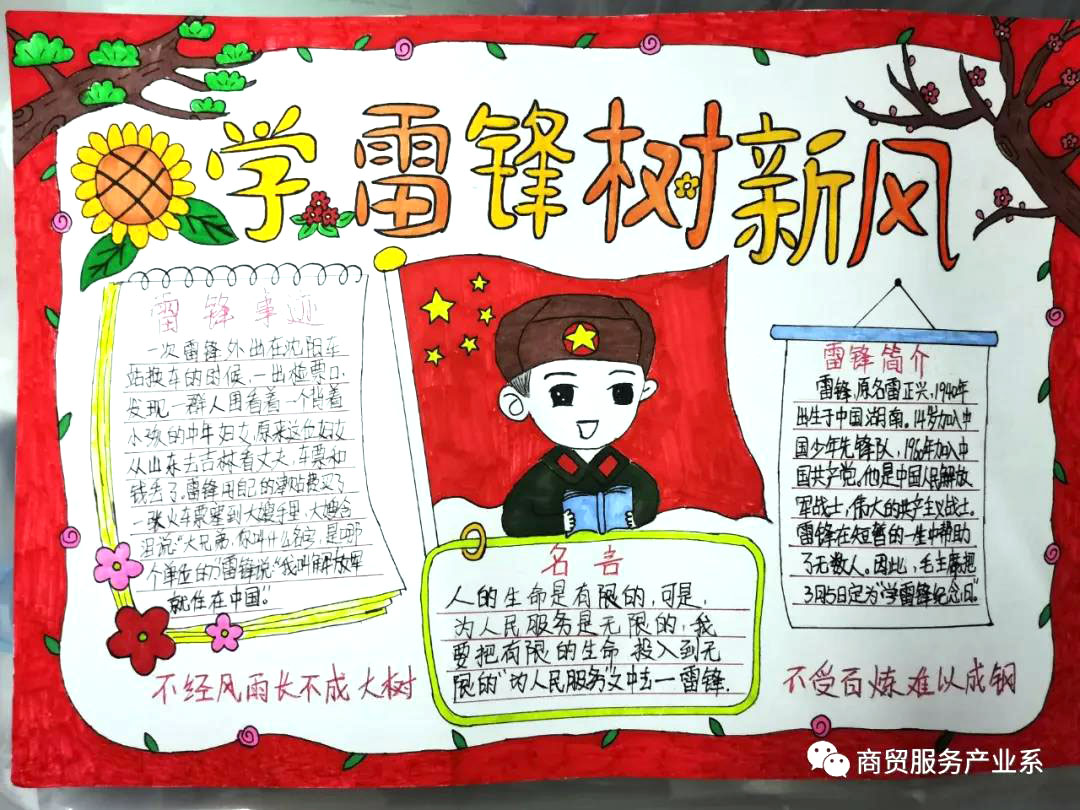 学雷锋树新风
雷锋事迹
一次雷锋外出在沈阳车
站换车的时候,一出检票口,
发现一群人围看着一个背着
小孩的中年妇女,原来这位妇女
从山东去吉林看丈夫,车票和
钱丢了,雷锋用自己的津贴费买了
一张火车票塞到大嫂手里,大嫂含
泪说:“大兄弟,你叫什么名字,是哪
个单位的?”雷锋说:“我叫解放军
就住在中国。”
名言
人的生命是有限的,可是,
为人民服务是无限的,我
要把有限的生命投入到无
限的“为人民服务”之中去—雷锋.
雷锋简介
雷锋,原名雷正兴,1940年
出生于中国湖南。14岁加入中
国少年先锋队,1960年加入中
国共产党。他是中国人民解放
军战士,伟大的共产主义战士。
雷锋在短暂的一生中帮助
了无数人。因此,毛主席把
3月5日定为“学雷锋纪念日。”
不经风雨长不成大树
不受百炼难以成钢
商贸服务产业系